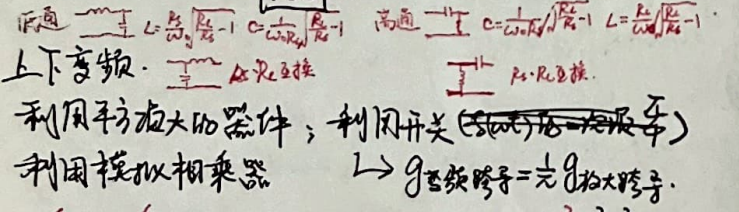 低通 L=\frac{R_s}{ω_0}\sqrt{\frac{R_L}{R_s}-1} C=\frac{1}{ω_0R_s}\sqrt{\frac{R_L}{R_s}-1} 高通 C=\frac{1}{ω_0R_s}\sqrt{\frac{R_L}{R_s}-1} L=\frac{R_L}{ω_0}\sqrt{\frac{R_L}{R_s}-1}
上下变频. Rs·RL互换 Rs·RL互换.
利用平方律大的器件；利用开关(
利用模拟相乘器 ↳ g变频跨导=\frac{1}{π}g放大跨导.